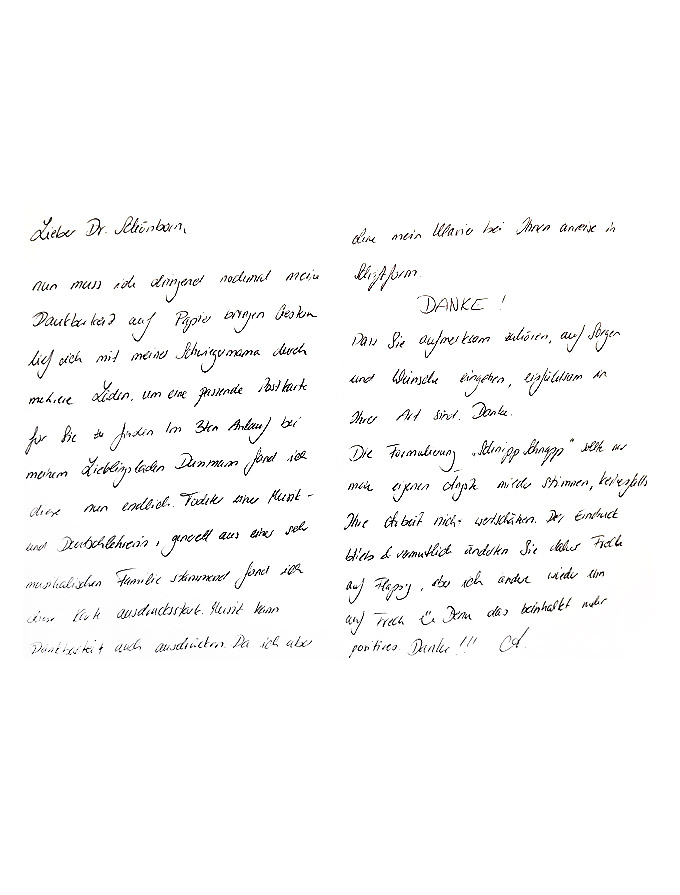 Lieber Dr. Schönborn,
nun muss ich dringend nochmal meine
Dankbarkeit auf Papier bringen. Gestern
lief ich mit meiner Schwiegermama durch
mehrere Läden, um eine passende Postkarte
für Sie zu finden. Im 3ten Anlauf bei
meinem Lieblingsladen fand ich
diese nun endlich. Tochter einer Musik-
und Deutschlehrerin, generell aus einer sehr
musikalischen Familie stammend fand ich
diese Karte ausdrucksstark. Musik kann
Dankbarkeit auch ausdrücken. Da ich aber
ohne mein Klavier bei Ihnen anreise in
Schriftform.
DANKE !
Dass Sie aufmerksam zuhören, auf Sorgen
und Wünsche eingehen, einfühlsam in
Ihrer Art sind. Danke.
Die Formulierung „Schnipp Schnapp" sollte nur
meine eigenen Ängste nieder stimmen, keinesfalls
Ihre Arbeit nicht wertschätzen. Der Eindruck
blieb & vermutlich änderten Sie daher Frech
auf, aber ich ändere wieder um
auf Frech Denn das beinhaltet mehr
positives. Danke !!!